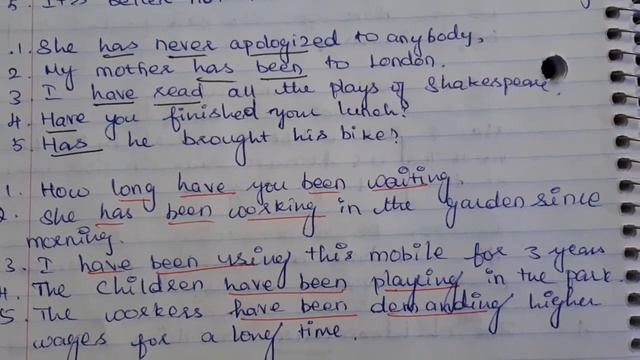 .1. She has never apologized to anybody,
2. My mother has been to London.
3 I have read all the plays of Shakespeare.
4. Have you finished your lunch?
5. Has he brought his bike?
1. How long have you been waiting.
2. She has been working in the garden since
morning.
3. I have been using this mobile for 3 years
4. The children have been playing in the park.
5 The workers have been demanding higher
wages for a long time.